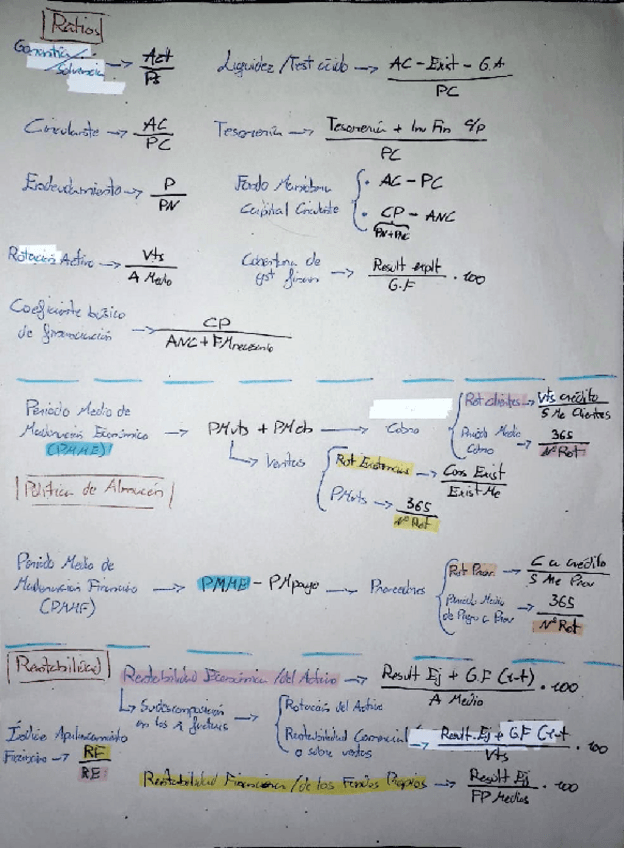 Ratios
Garantía/Solvencia → Act/Ps
Liquidez/Test ácido → AC - Exist - G.A/PC
Circulante → AC/PC
Tesorería → Tesorería + Inv Fin c/p/PC
Endeudamiento → P/PN
Fondo Maniobra
Capital Circulante
· AC - PC
· CP - ANC
PN+PNC
Rotación Activo → Vts/A Medio
Cobertura de gst financ → Result explt/G.F · 100
Coeficiente básico de financiación → CP/ANC + FM necesario
Periodo Medio de
Maduración Económico → PMvts + PMcb → Cobro
(PMME)
Rot clientes → Vts crédito/S Me Clientes
Periodo Medio Cobro → 365/Nº Rot
↳ Ventas
Rot Existencias → Cons Exist/Exist Me
PMvts → 365/Nº Rot
Política de Almacén
Periodo Medio de
Maduración Financiero → PMME - PMpago → Proveedores
(PMMF)
Rot Prov → C a crédito/S Me Prov
Periodo Medio de Pago a Prov → 365/Nº Rot
Rentabilidad
Rentabilidad Económica/del Activo → Result Ej + G.F (1-t)/A Medio · 100
↳ Su descomposición en los 2 factores →
Rotación del Activo
Rentabilidad Comercial o sobre ventas → Result Ej + G.F (1-t/Vts · 100
Índice Apalancamiento
Financiero → RF/RE
Rentabilidad Financiera/de los Fondos Propios → Result Ej/FP Medios · 100